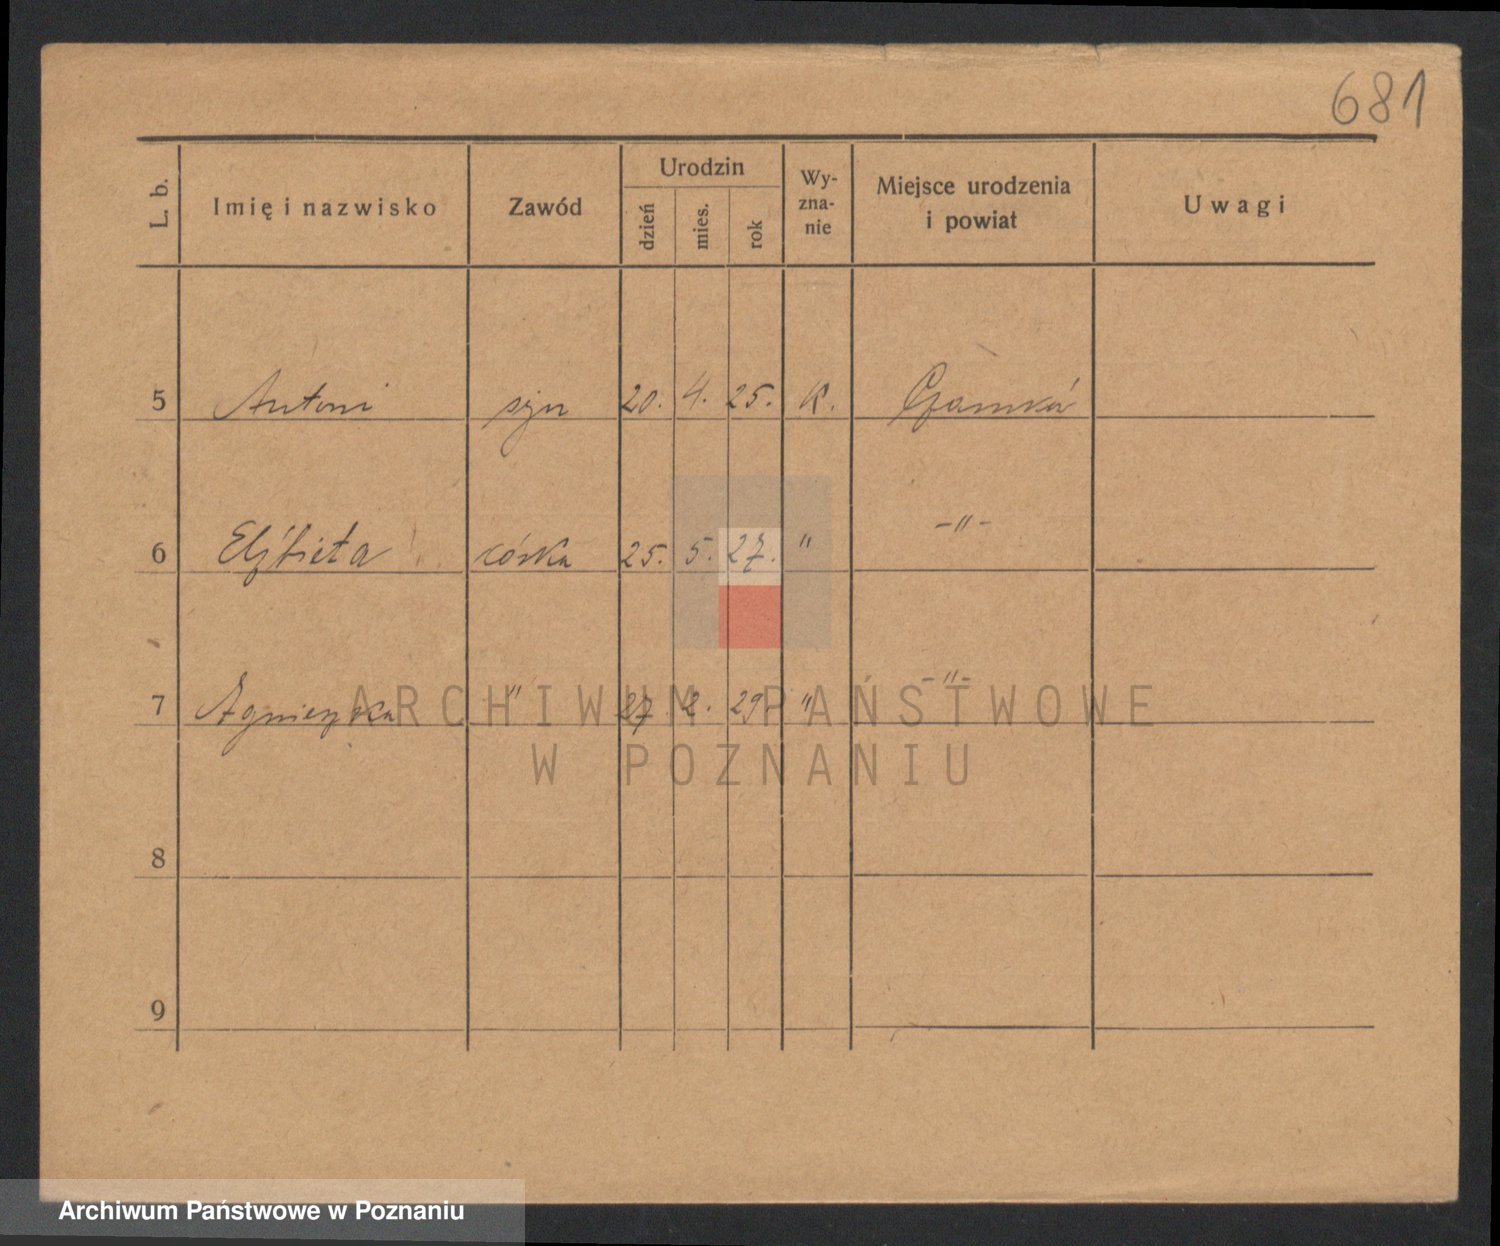 681
L. b. Imię i nazwisko Zawód Urodzin dzień mies. rok Wy-zna-nie Miejsce urodzenia i powiat Uwagi
5 Antoni syn 20. 4. 25. K.
6 Elżbieta córka 25. 5. 27. " -"-
7 Agnieszka " 27 2. 29. " -"-
8
9
ARCHIWUM PAŃSTWOWE
W POZNANIU
Archiwum Państwowe w Poznaniu